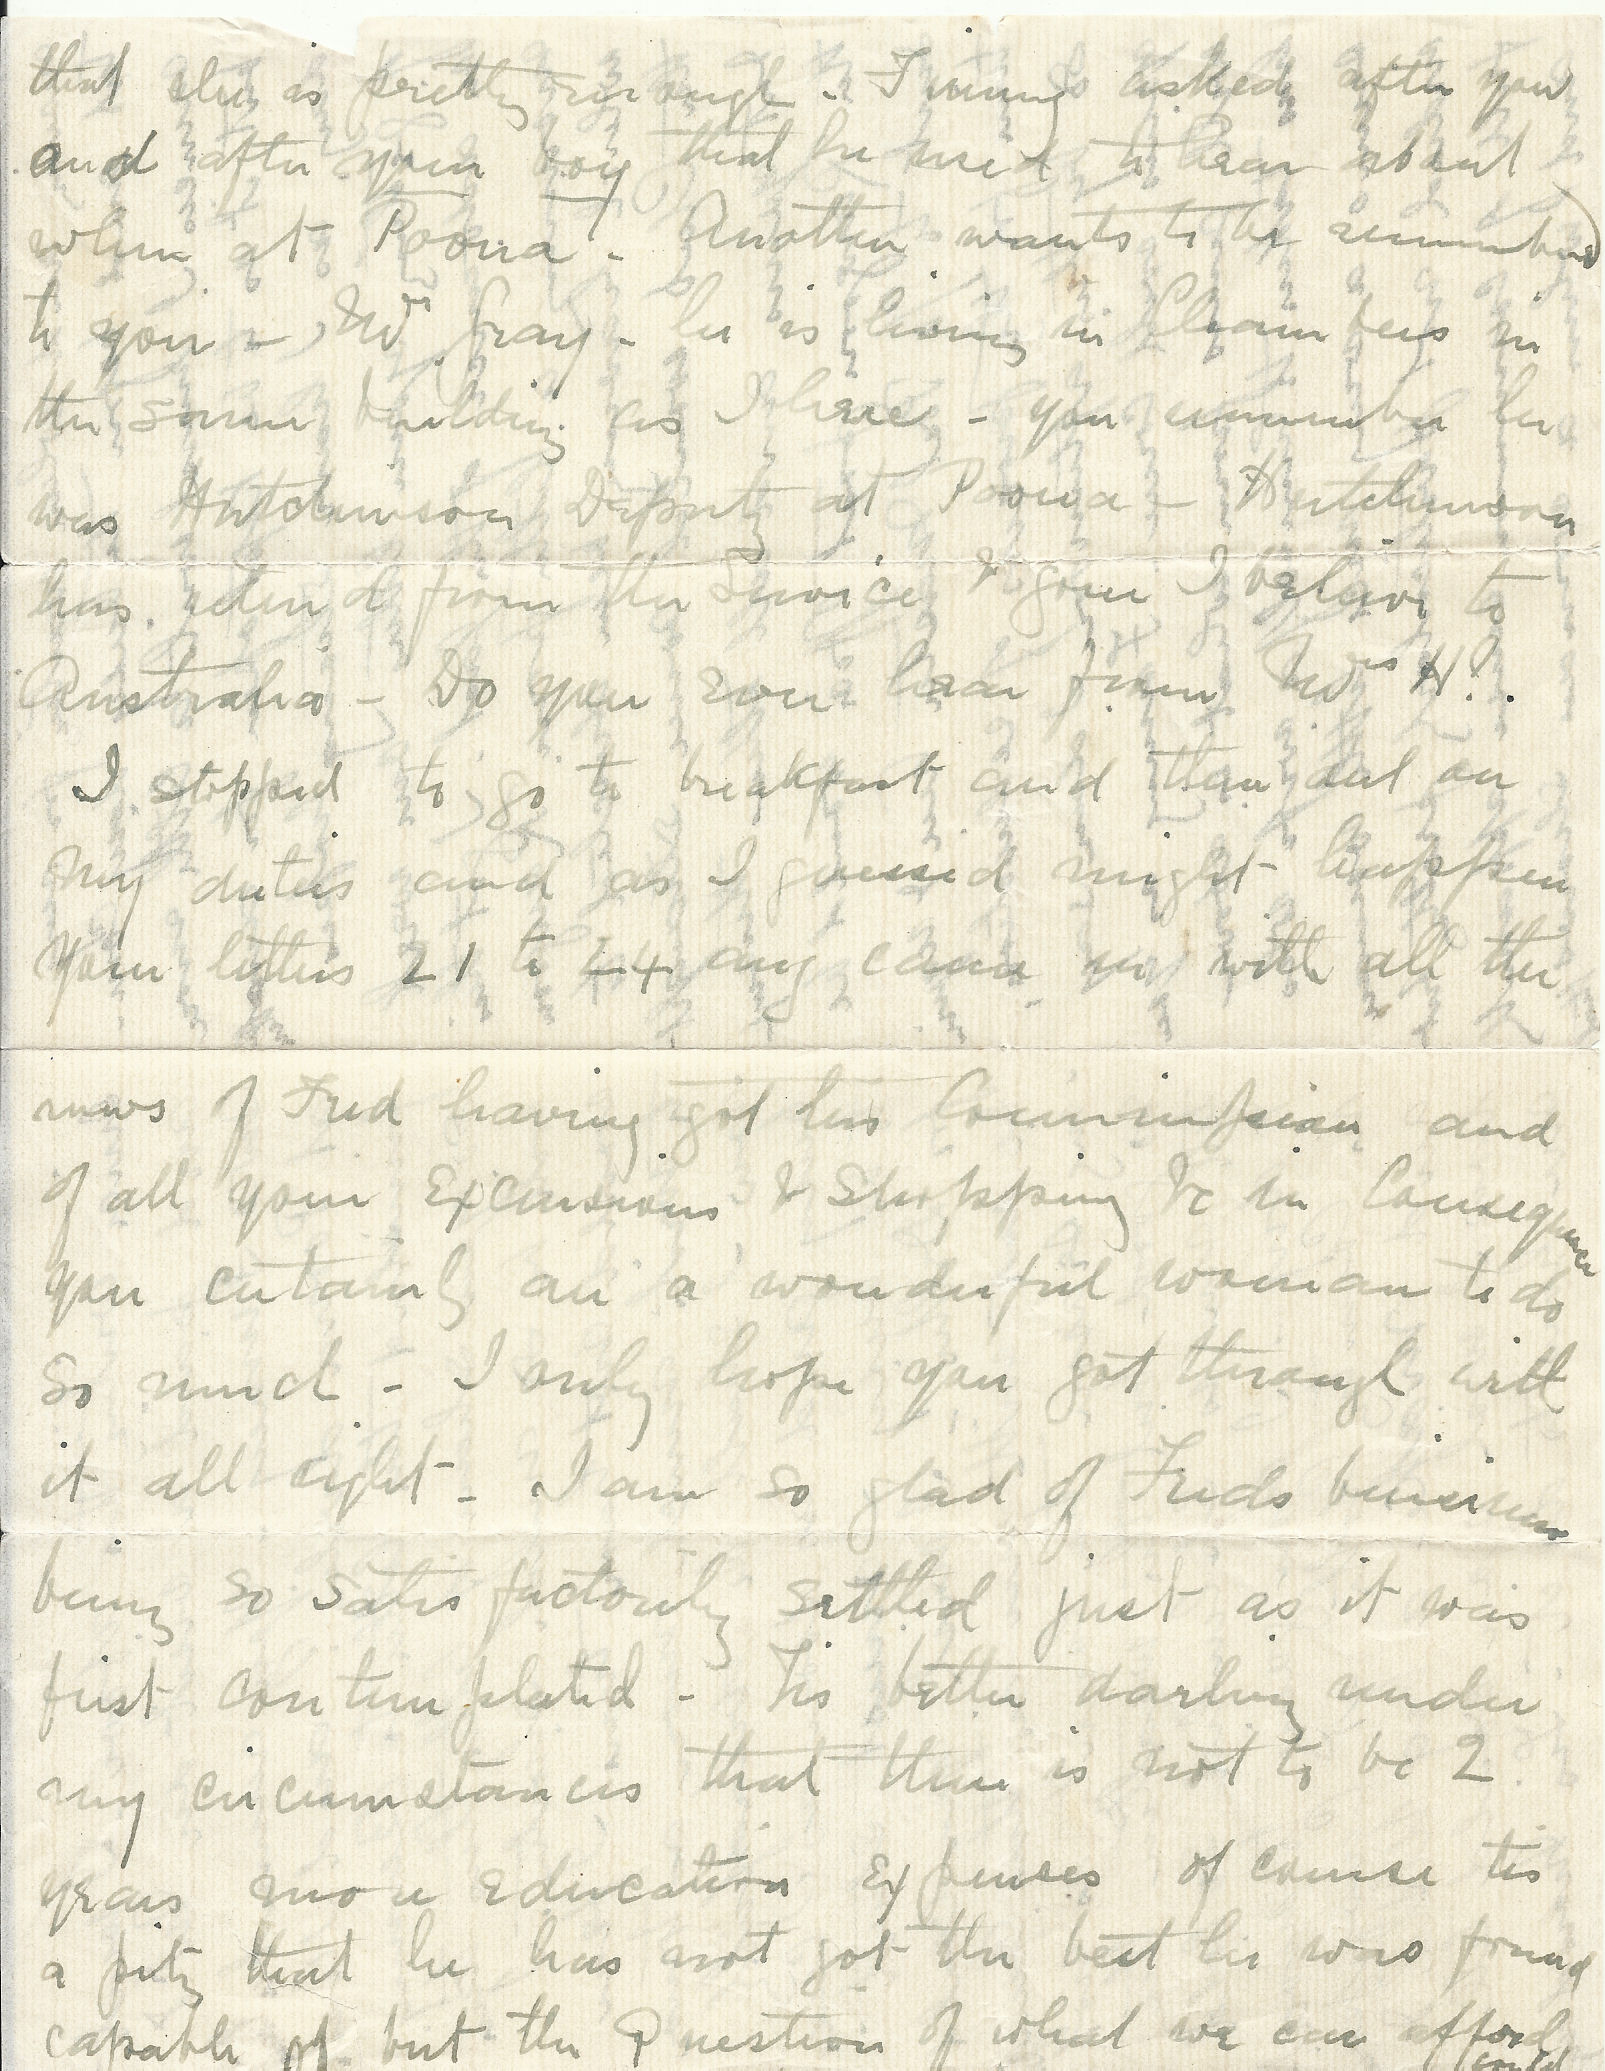 that she is pretty enough - Timmy asked after you
and after your boy that he used to hear about
when at Poona - Another wants to be remembered
to you - Mr Gray - he is living in Chambers in
the same building as I here - you remember he
was Hutchinson Deputy at Poona - Hutchinson
has retired from the Service & gone I believe to
Australia - Do you ever hear from Mrs H?.
I stopped to go to breakfast and then out on
my duties and as I guessed might happen
your letters 21 to 24 aug came in with all the
news of Fred having got his Commission and
of all your Excursions & Shopping &c in Consequence
you certainly are a wonderful woman to do
so much - I only hope you got through with
it all right - I am so glad of Freds business
being so satisfactorily settled just as it was
first contemplated - Tis better darling under
my circumstances that there is not to be 2
years more education expenses of course tis
a pity that he has not got the best he was found
capable of but the Question of what we can afford